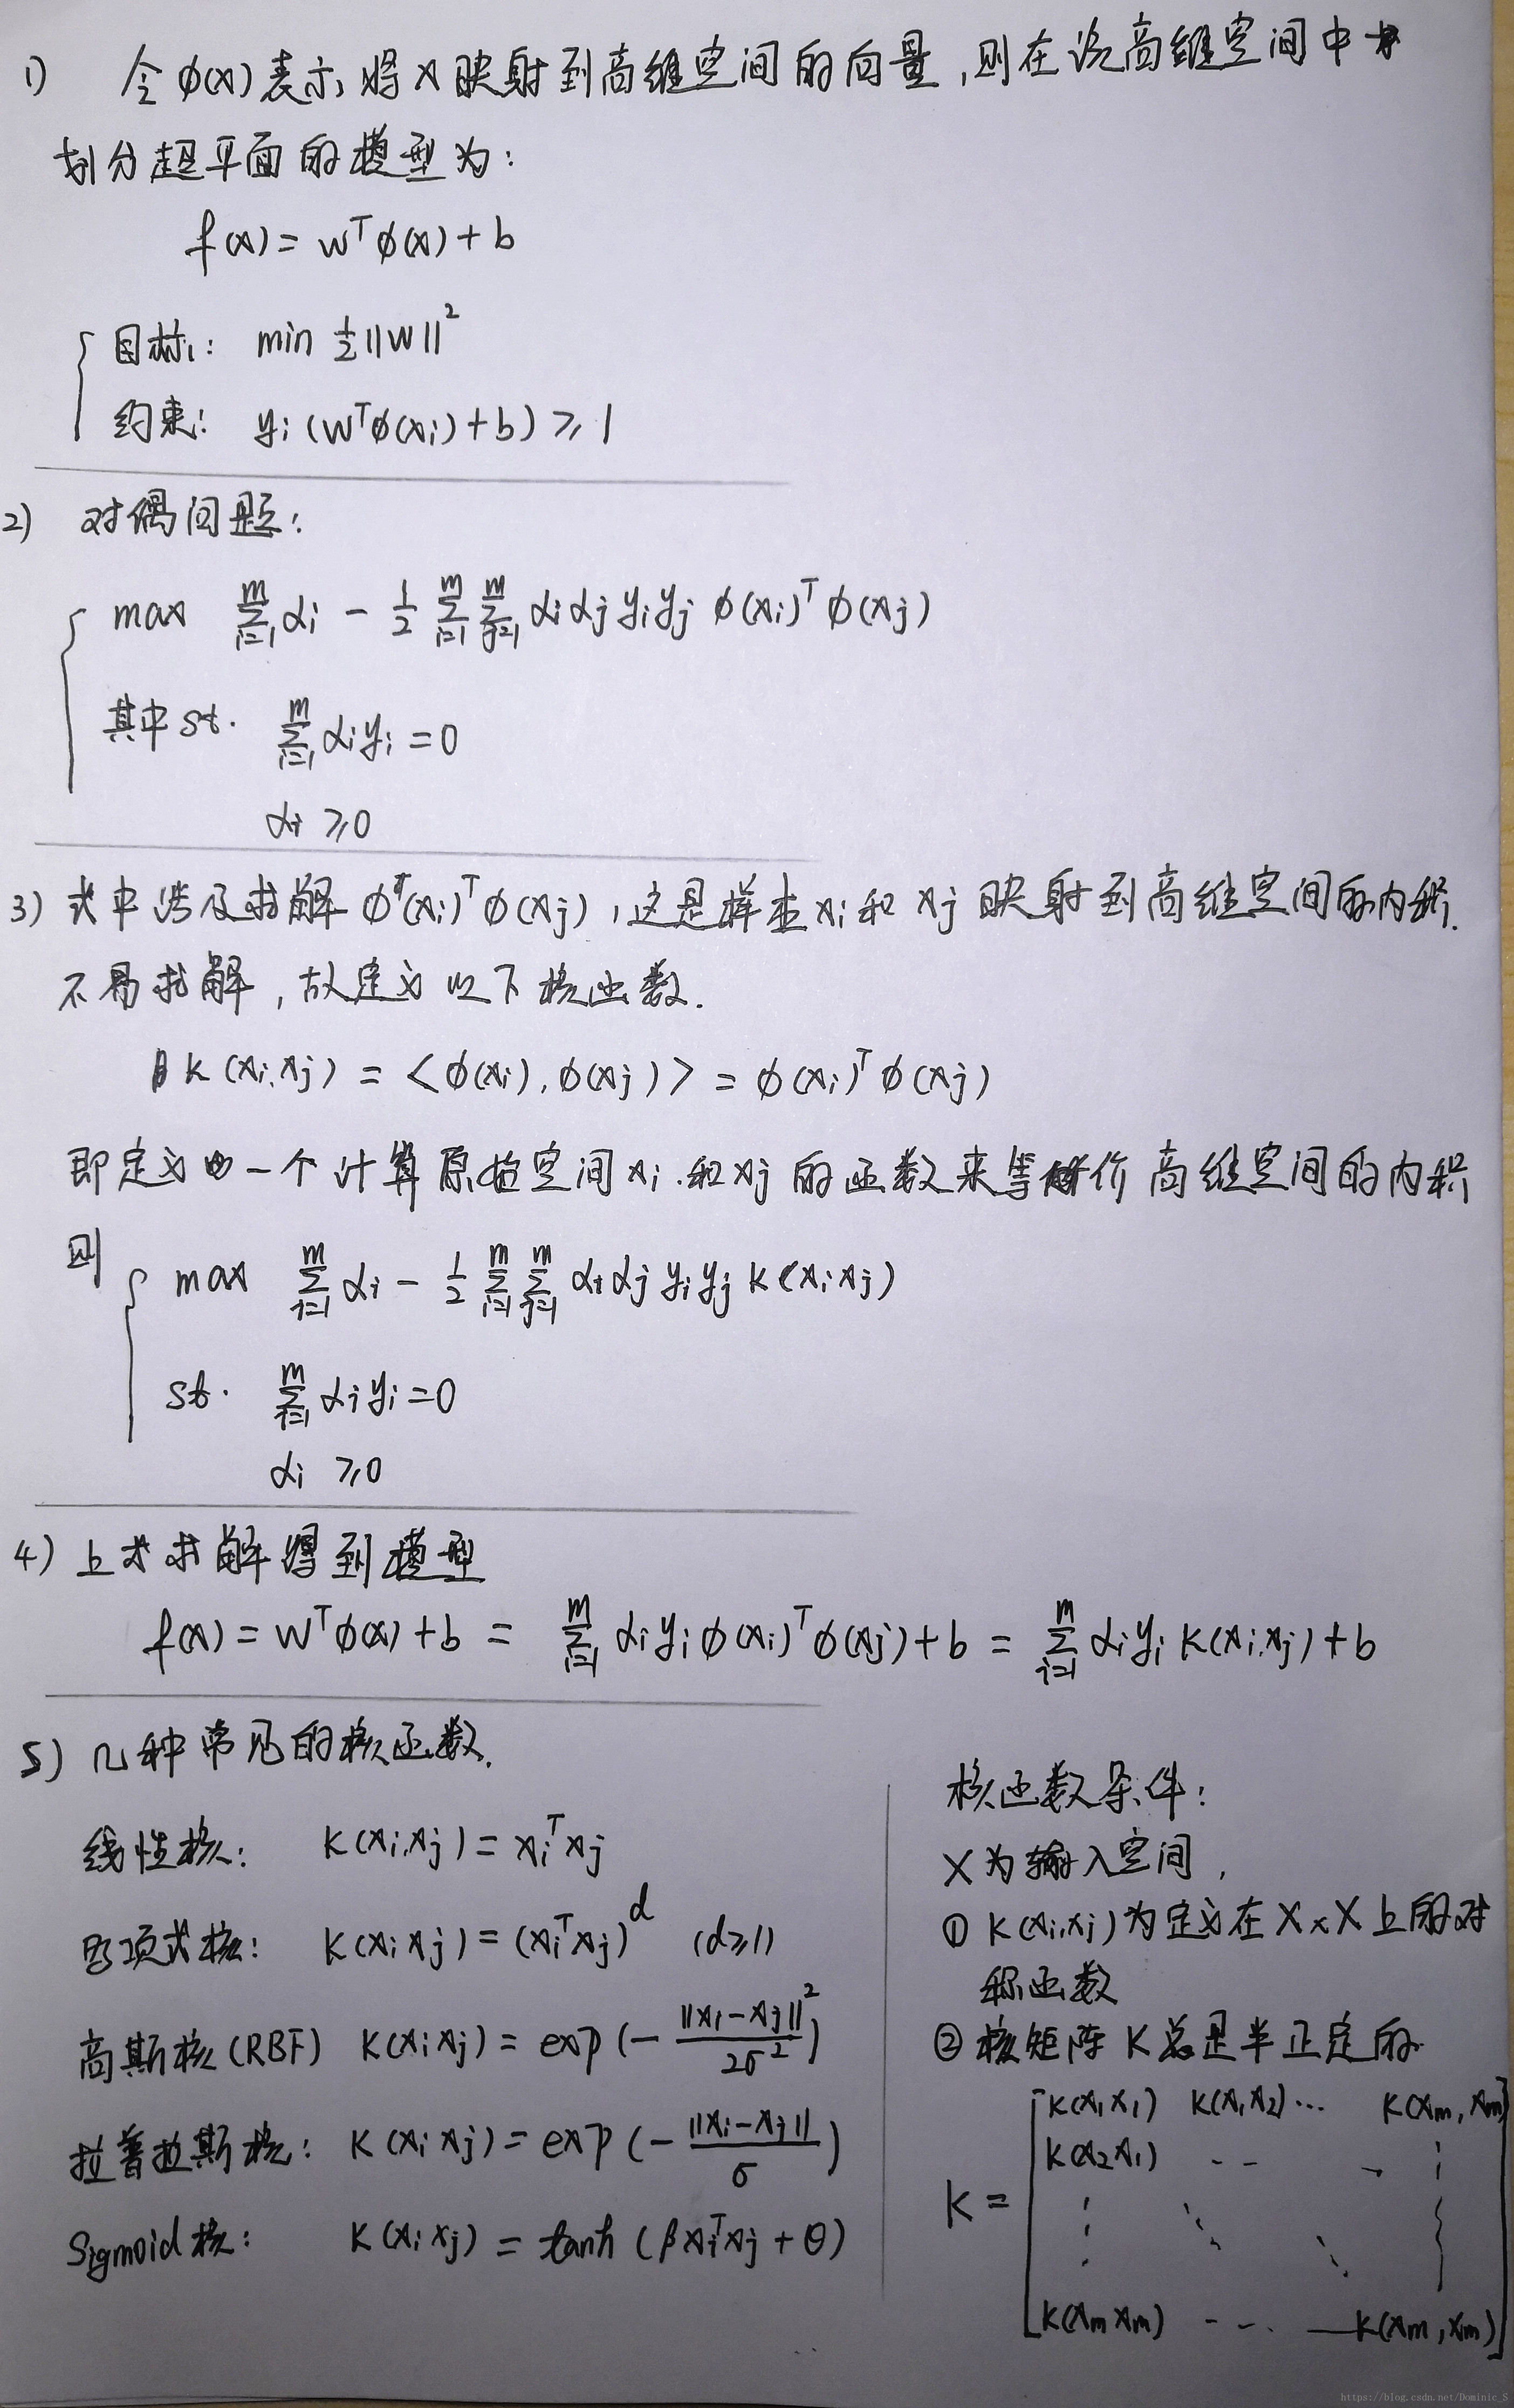 1) 令φ(x)表示将x映射到高维空间的向量,则在该高维空间中
划分超平面的模型为:
f(x) = wᵀφ(x) + b
目标: min ½||w||²
约束: yi(wᵀφ(xi)+b) ≥ 1
2) 对偶问题:
max ∑_{i=1}^{m} αi - 1/2 ∑_{i=1}^{m} ∑_{j=1}^{m} αi αj yi yj φ(xi)ᵀφ(xj)
其中 st. ∑_{i=1}^{m} αi yi = 0
αi ≥ 0
3) 式中涉及求解 φ(xi)ᵀφ(xj),这是样本xi和xj映射到高维空间的内积.
不易求解,故定义以下核函数.
k(xi,xj) = <φ(xi),φ(xj)> = φ(xi)ᵀφ(xj)
即定义一个计算原始空间xi和xj的函数来等价高维空间的内积
则 max ∑_{i=1}^{m} αi - 1/2 ∑_{i=1}^{m} ∑_{j=1}^{m} αi αj yi yj k(xi xj)
st. ∑_{i=1}^{m} αi yi = 0
αi ≥ 0
4) 上式求解得到模型
f(x) = wᵀφ(x) + b = ∑_{i=1}^{m} αi yi φ(xi)ᵀφ(xj) + b = ∑_{i=1}^{m} αi yi k(xi,xj) + b
5) 几种常见的核函数.
线性核: k(xi,xj) = xiᵀxj
多项式核: k(xi xj) = (xiᵀxj)^d (d≥1)
高斯核(RBF) k(xi xj) = exp(- ||xi-xj||² / 2σ²)
拉普拉斯核: k(xi xj) = exp(- ||xi-xj|| / σ)
Sigmoid核: k(xi xj) = tanh(βxiᵀxj + θ)
核函数条件:
X为输入空间,
① k(xi,xj)为定义在X×X上的对
称函数
② 核矩阵K总是半正定的
k(x1 x1) k(x1 x2) ... k(xm, xm)
k(x2 x1) ...
K =
k(xm xm) ... k(xm, xm)
https://blog.csdn.net/Dominic_S